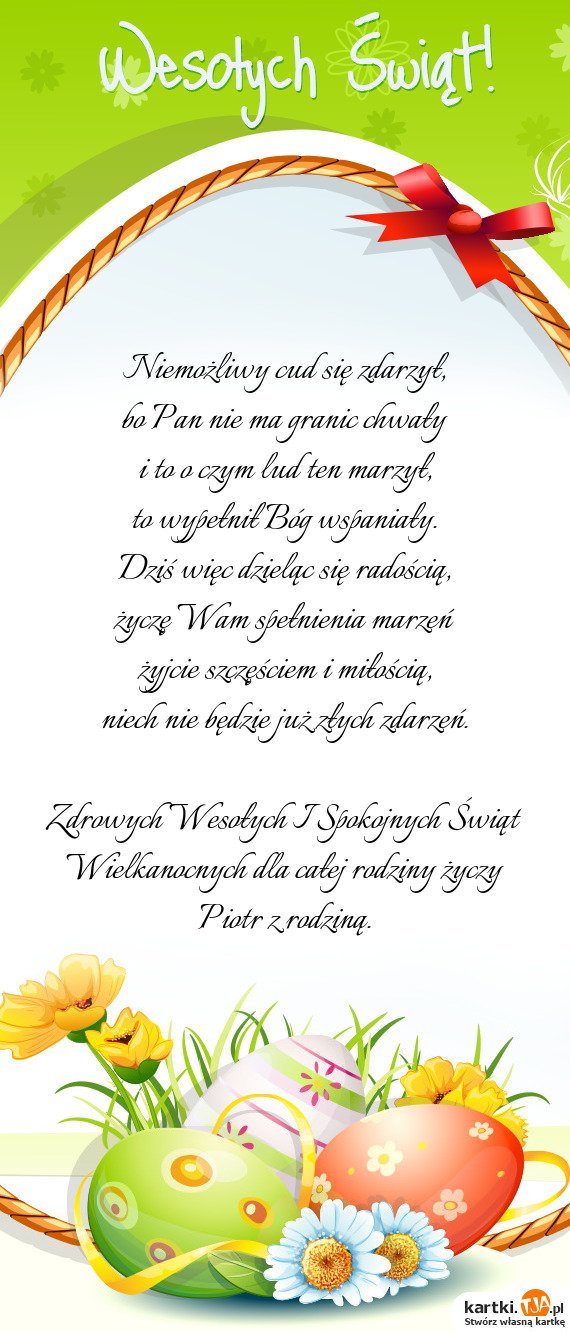 Wesołych Świąt!
Niemożliwy cud się zdarzył,
bo Pan nie ma granic chwały
i to o czym lud ten marzył,
to wypełnił Bóg wspaniały.
Dziś więc dzieląc się radością,
życzę Wam spełnienia marzeń
żyjcie szczęściem i miłością,
niech nie będzie już złych zdarzeń.
Zdrowych Wesołych I Spokojnych Świąt
Wielkanocnych dla całej rodziny życzy
Piotr z rodziną.
kartki.TJA.pl
Stwórz własną kartkę